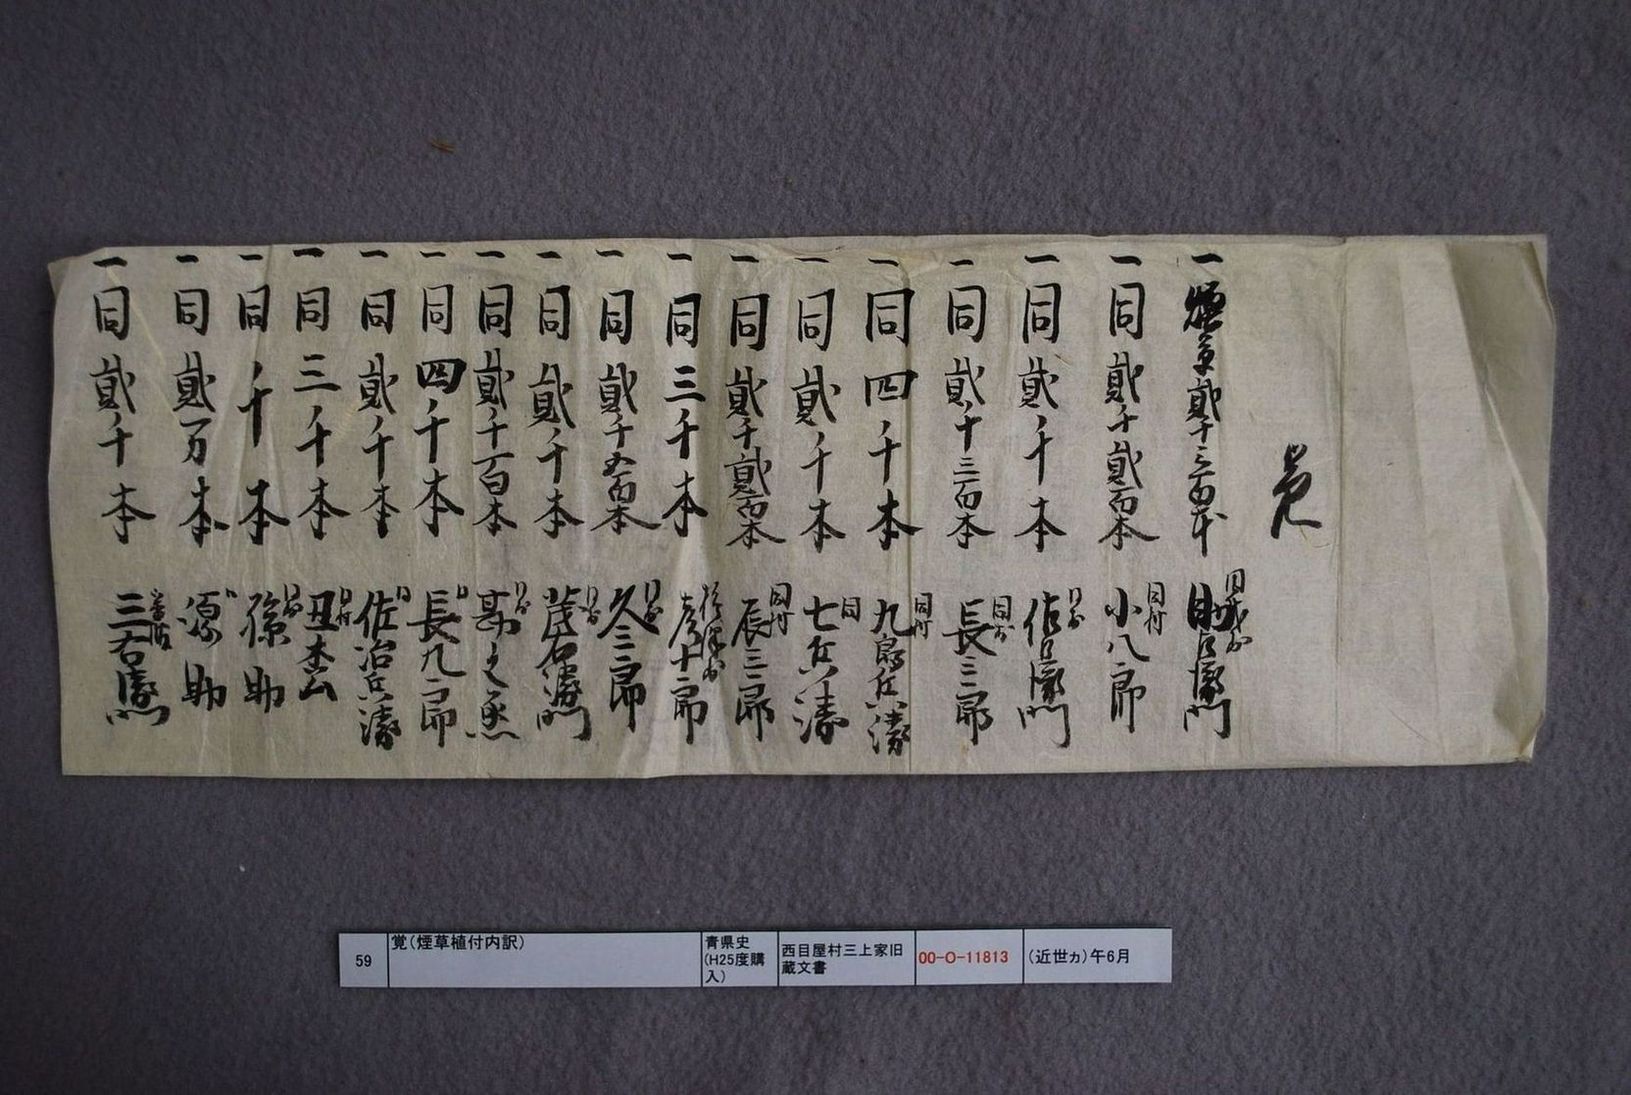 覚
一煙草貳千三百本
一同貳千貳百本 同村 小八郎
一同貳千本
一同貳千三百本 同村 長三郎
一同四千本 同村 九郎兵衛
一同貳千本 同 七兵衛
一同貳千貳百本 同村 辰三郎
一同三千本 彦十郎
一同貳千五百本 同村 久三郎
一同貳千本 同村 茂右衛門
一同貳千百本 同村 甚之丞
一同四千本 同 長九郎
一同貳千本 同 佐治兵衛
一同三千本 同村 丑松
一同千本 同村 孫助
一同貳万本 源助
一同貳千本 三右衛門
59
覚(煙草植付内訳)
青県史(H25度購入)
西目屋村三上家旧蔵文書
00-O-11813
(近世ヵ)午6月